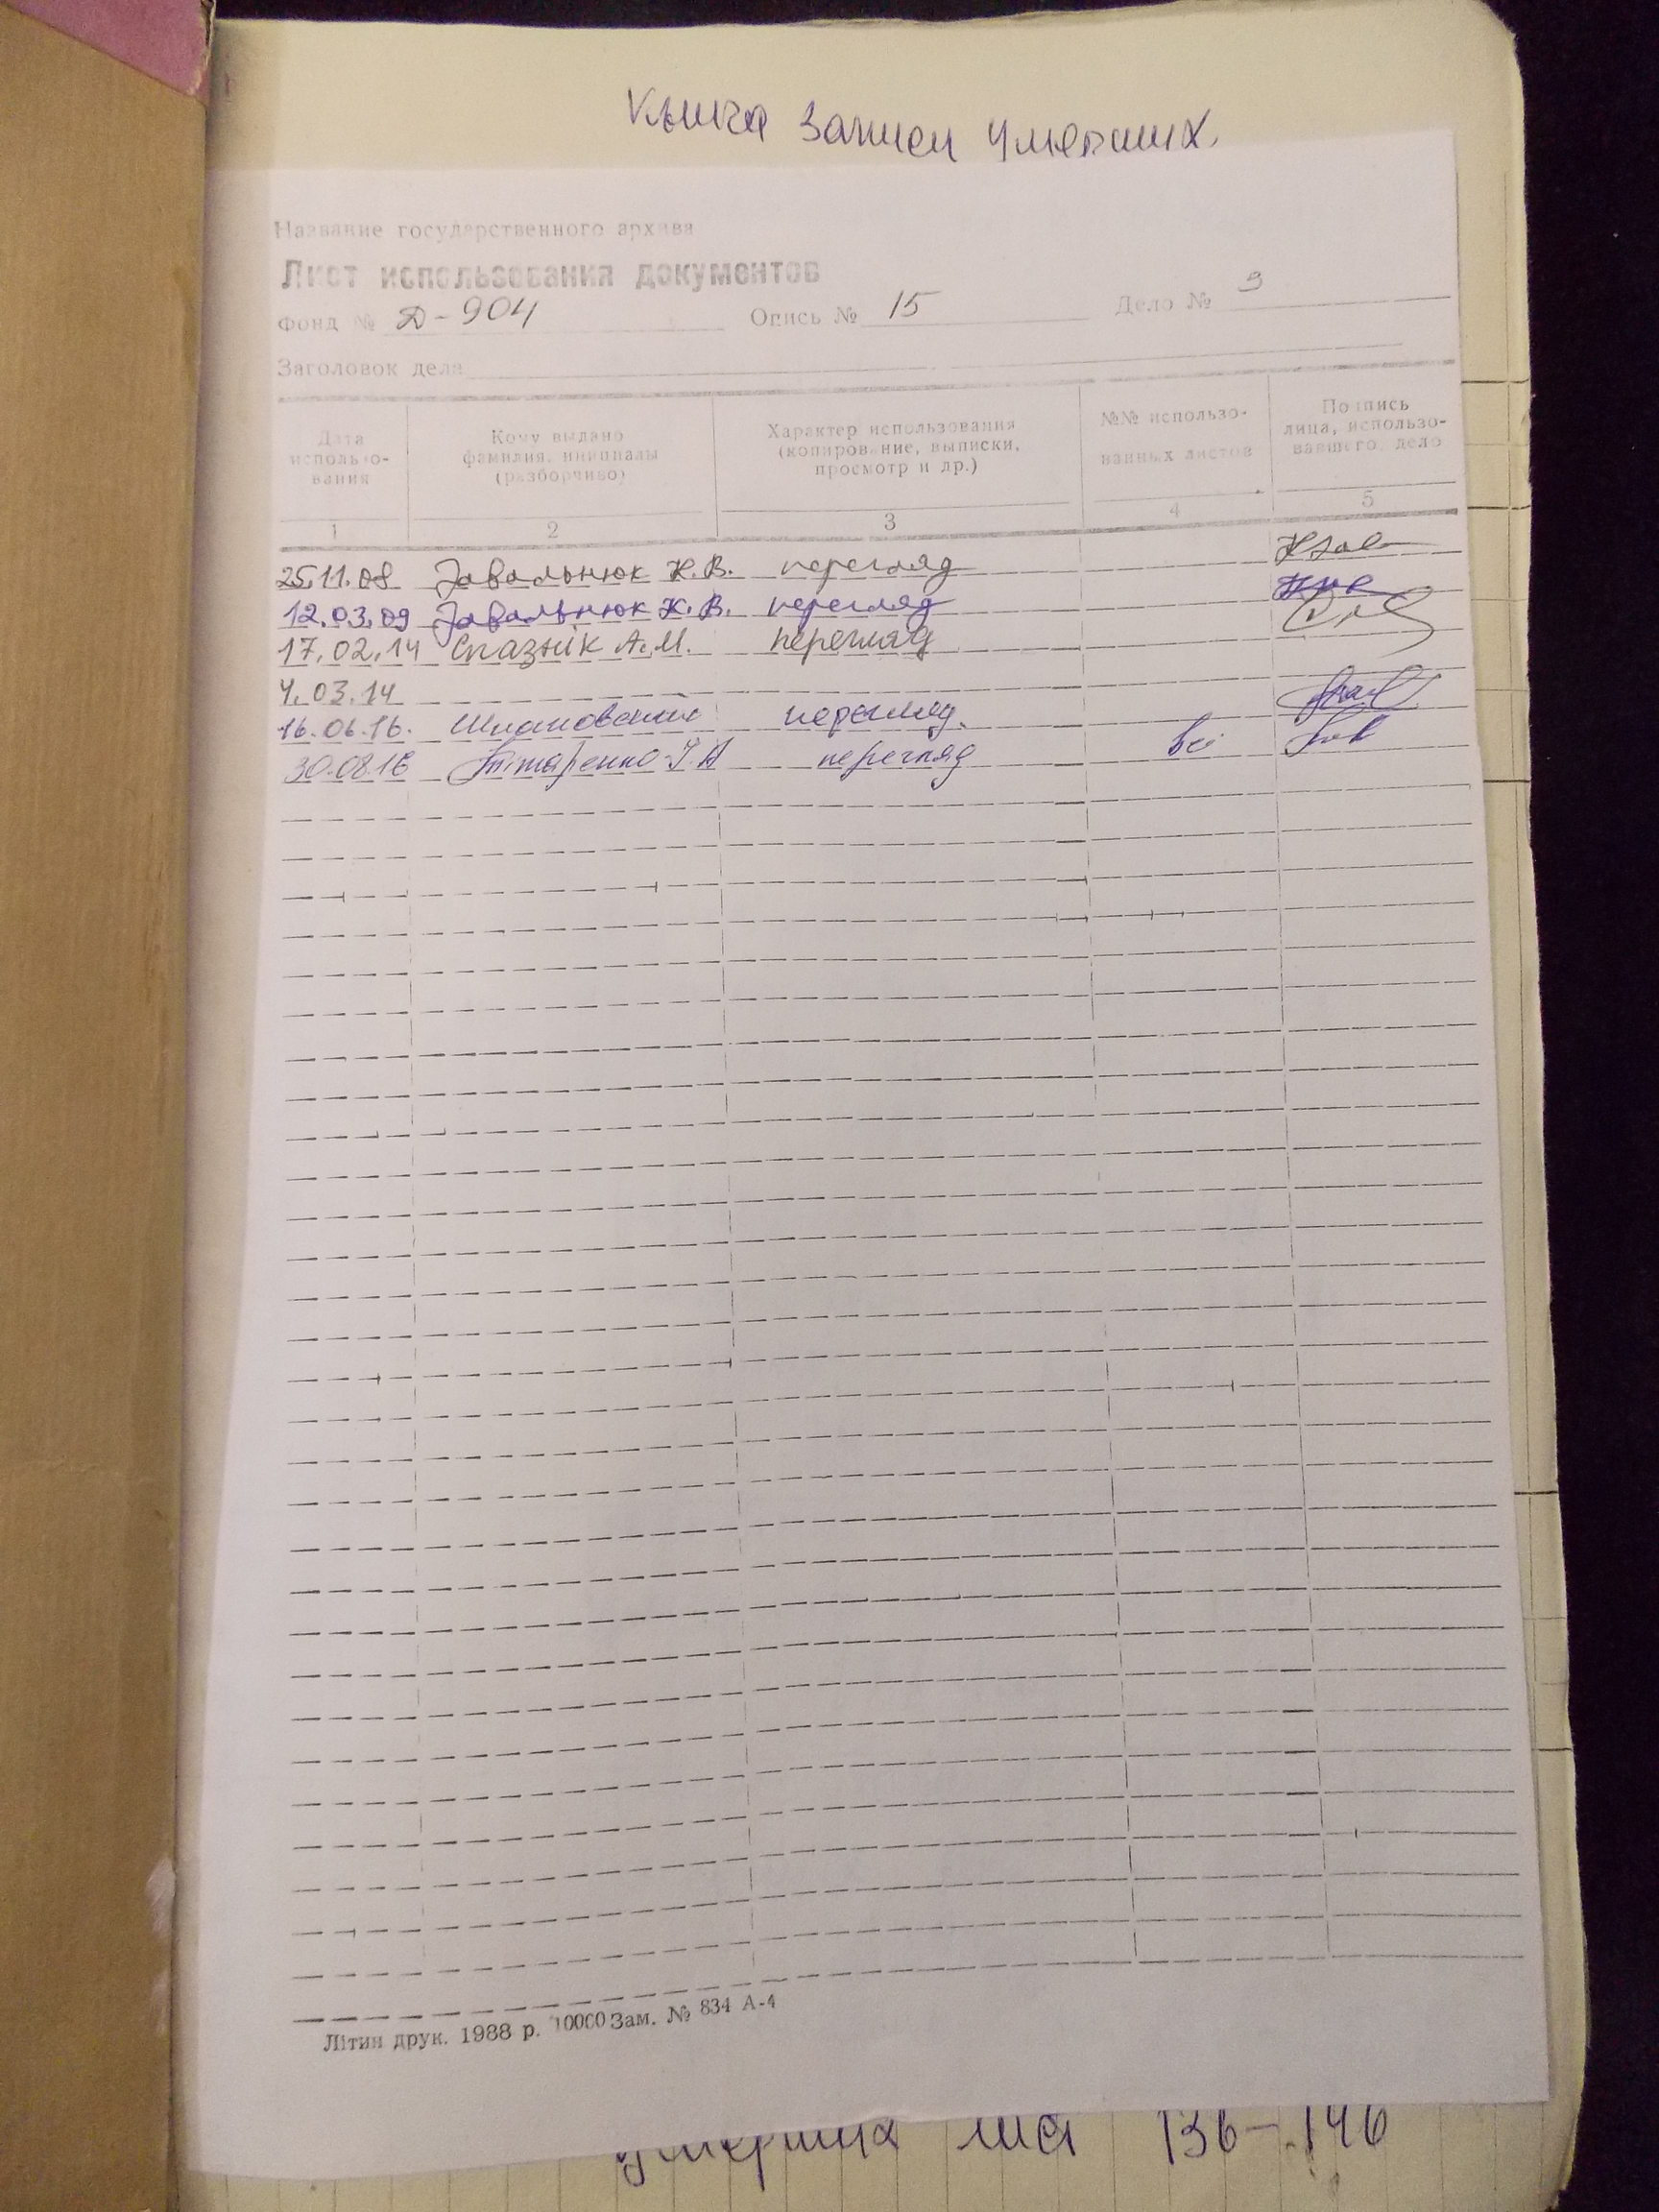 Книга записи умерших.
Название государственного архива
Лист использования документов
Фонд № Д-904 Опись № 15 Дело № 3
Заголовок дела
Дата использо-вания
Кому выдано фамилия, инициалы (разборчиво)
Характер использования (копирование, выписки, просмотр и др.)
№№ использо-ванных листов
Подпись лица, использо-вавшего дело
1 2 3 4 5
25.11.08 Завальнюк К.В. перегляд
12.03.09 Завальнюк К.В. перегляд
17.02.14 Спазнік А.М. перегляд
4.03.14
16.06.16. перегляд.
30.08.16 Тітаренко перегляд всі
Літин друк. 1988 р. 10000 Зам. № 834 А-4
умерших 136-146